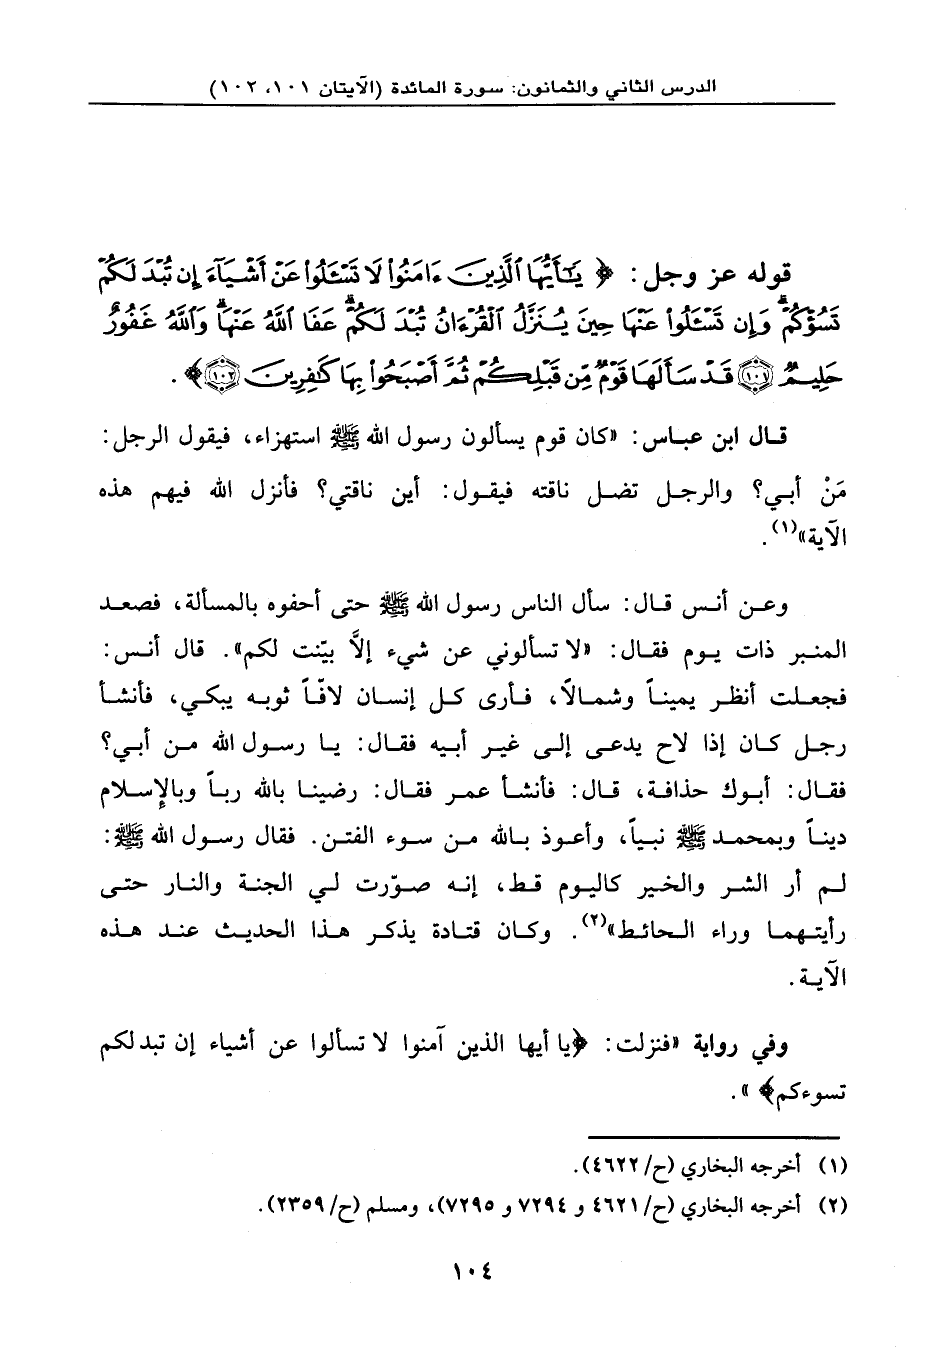 الدرس الثاني والثمانون: سورة المائدة (الآيتان ١٠١، ١٠٢)
قوله عز وجل: ﴿ يَٰٓأَيُّهَا ٱلَّذِينَ ءَامَنُوا۟ لَا تَسْـَٔلُوا۟ عَنْ أَشْيَآءَ إِن تُبْدَ لَكُمْ
تَسُؤْكُمْ ۖ وَإِن تَسْـَٔلُوا۟ عَنْهَا حِينَ يُنَزَّلُ ٱلْقُرْءَانُ تُبْدَ لَكُمْ ۗ عَفَا ٱللَّهُ عَنْهَا ۗ وَٱللَّهُ غَفُورٌ
حَلِيمٌ ۝١٠١ قَدْ سَأَلَهَا قَوْمٌ مِّن قَبْلِكُمْ ثُمَّ أَصْبَحُوا۟ بِهَا كَٰفِرِينَ ۝١٠٢﴾ .
قال ابن عباس: «كان قوم يسألون رسول الله ﷺ استهزاء، فيقول الرجل:
مَنْ أبي؟ والرجل تضل ناقته فيقول: أين ناقتي؟ فأنزل الله فيهم هذه
الآية»(١).
وعن أنس قال: سأل الناس رسول الله ﷺ حتى أحفوه بالمسألة، فصعد
المنبر ذات يوم فقال: «لا تسألوني عن شيء إلاَّ بيّنت لكم». قال أنس:
فجعلت أنظر يميناً وشمالاً، فأرى كل إنسان لافّاً ثوبه يبكي، فأنشأ
رجل كان إذا لاح يدعى إلى غير أبيه فقال: يا رسول الله من أبي؟
فقال: أبوك حذافة، قال: فأنشأ عمر فقال: رضينا بالله رباً وبالإسلام
ديناً وبمحمد ﷺ نبياً، وأعوذ بالله من سوء الفتن. فقال رسول الله ﷺ:
لم أر الشر والخير كاليوم قط، إنه صوّرت لي الجنة والنار حتى
رأيتهما وراء الحائط»(٢). وكان قتادة يذكر هذا الحديث عند هذه
الآية.
وفي رواية «فنزلت: ﴿يا أيها الذين آمنوا لا تسألوا عن أشياء إن تبد لكم
تسوءكم﴾ ».
(١) أخرجه البخاري (ح/ ٤٦٢٢).
(٢) أخرجه البخاري (ح/ ٤٦٢١ و ٧٢٩٤ و ٧٢٩٥)، ومسلم (ح/ ٢٣٥٩).
١٠٤